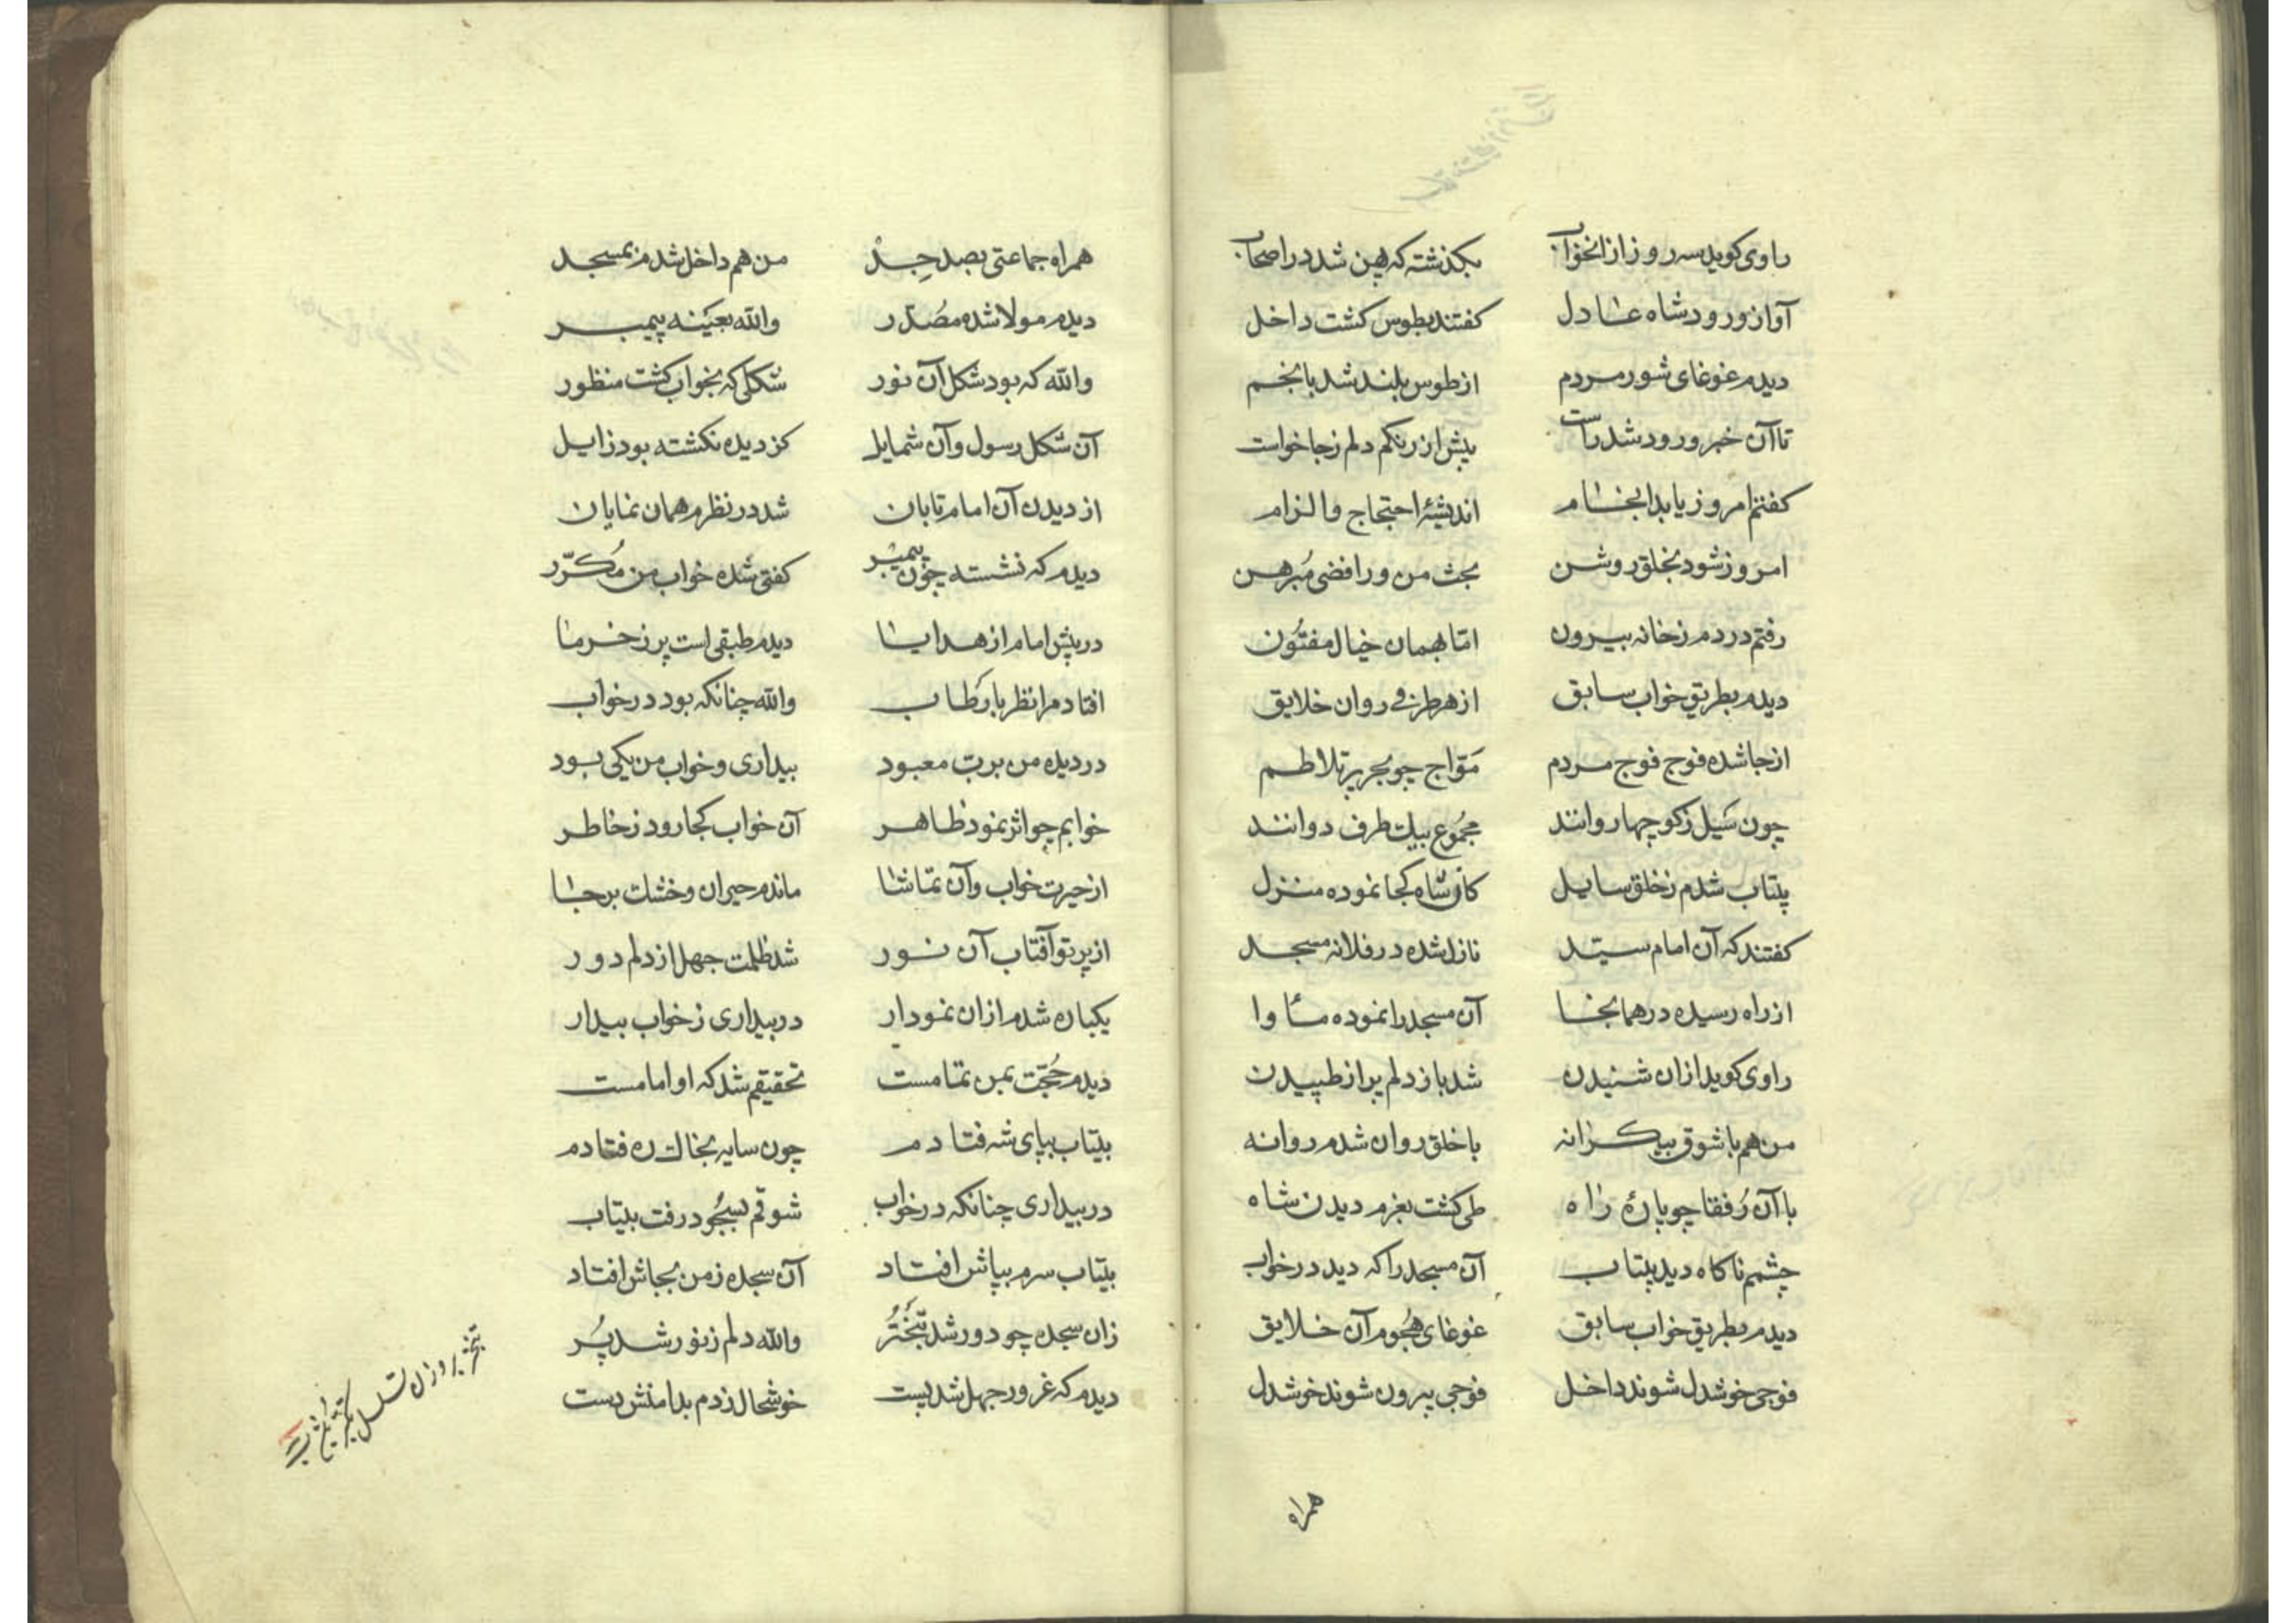 راوی کوید سه روز از انخواب بکذشته که پهن شد در اصحاب
آواز ورود شاه عادل کفتند بطوس کشت داخل
دیدم غوغای شور مردم از طوس بلند شد بانجم
تا آن خبر ورود شد راست پیش از رنکم دلم زجا خواست
کفتم امروز یابد انجام اندیشهٔ احتجاج و الزام
امروز شود بخلق روشن بحث من و رافضی مُبرهن
رفتم در دم زخانه بیرون امّا بهمان خیال مفتُون
دیدم بطریق خواب سابق از هر طرفی روان خلایق
از جا شده فوج فوج مردم مَوّاج چو بحر پر تلاطم
چون سَیل ز کوچها روانند مجمُوع بیک طرف دوانند
بیتاب شدم ز خلق سایل کان شاه کجا نموده منزل
کفتند که آن امام سیّد نازل شده در فلانه مسجد
از راه رسیده در همانجا آن مسجد را نموده مأوا
راوی کوید ازان شنیدن شد باز دلم پر از طپیدن
من هم با شوق بیکرانه با خلق روان شدم روانه
با آن رُفقا چو پارهٔ راه طی کشت بعزم دیدن شاه
چشمم ناکاه دید بیتاب آن مسجد را که دید در خواب
دیدم بطریق خواب سابق غوغای هُجوم آن خلایق
فوجی خوشدل شوند داخل فوجی بیرون شوند خوشدل
همراه
همراه جماعتی بصد جِدّ من هم داخل شدم بمسجد
دیدم مولا شده مصُدّر والله بعَینه پیمبر
والله که بود شکل آن نور شکلی که بخواب کشت منظور
آن شکل رسول و آن شمایل کز دیده نکشته بود زایل
از دیدن آن امام تابان شد در نظرم همان نمایان
دیدم که نشسته چون پیمبر کفتی شده خواب من مُکرّر
در پیش امام از هدایا دیدم طبقی است پر ز خرما
افتاد مرا نظر بارَطاب والله چنانکه بود در خواب
در دیده من بربّ معبود بیداری و خواب من یکی بود
خوابم چو اثر نمود ظاهر آن خواب کجا رود ز خاطر
از حیرت خواب و آن تماشا ماندم حیران و خشک بر جا
از پرتو آفتاب آن نور شد ظلمت جهل از دلم دور
یکباره شدم ازان نمودار در بیداری ز خواب بیدار
دیدم حُجّت بمن تمامست تحقیقم شد که او امامست
بیتاب بپای شه فتادم چون سایه بخاک ره فتادم
در بیداری چنانکه در خواب شوقم بسجُود رفت بیتاب
بیتاب سرم بپاش افتاد آن سجده ز من بجاش افتاد
زان سجده چو دور شد تَبَخْتُر والله دلم ز نور شد پُر
دیدم که غرور جهل شد پست خوشحال زدم بدامنش دست